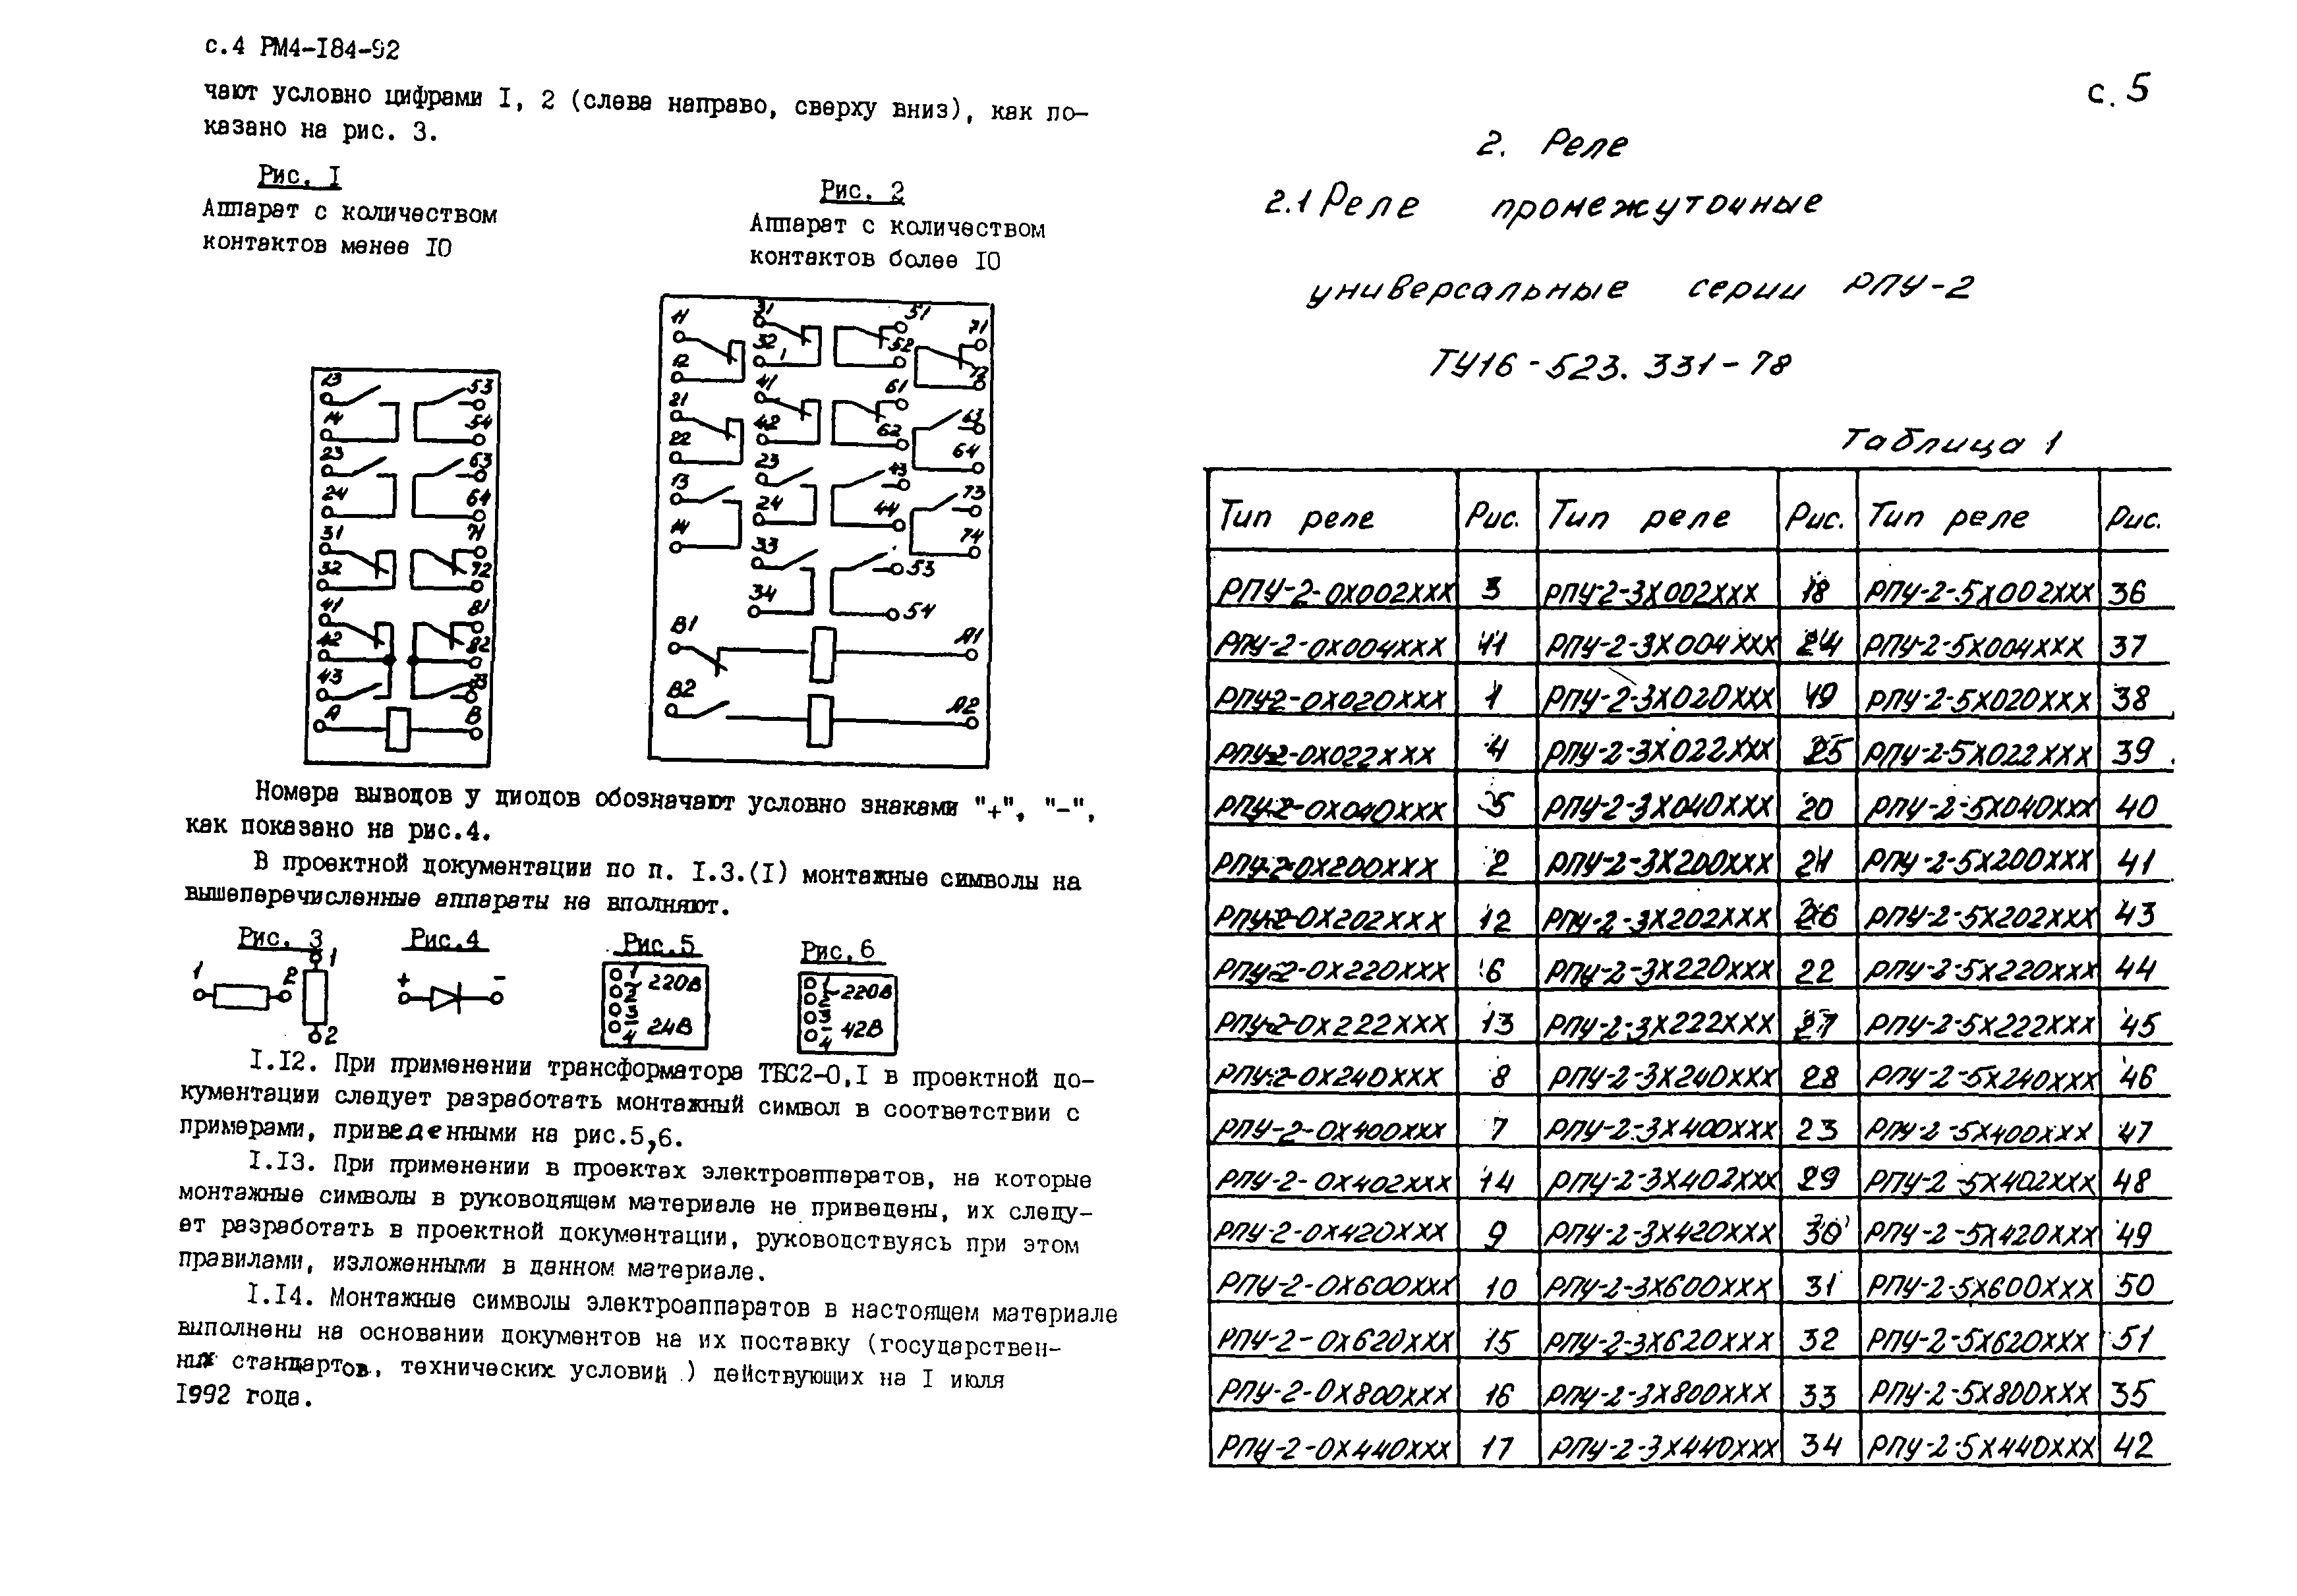 с.4 РМ4-I84-92
чают условно цифрами I, 2 (слева направо, сверху вниз), как по-
казано на рис. 3.
Рис. I
Аппарат с количеством
контактов менее IO
Рис. 2
Аппарат с количеством
контактов более IO
13 53
14 54
23 63
24 64
31 71
32 72
41 81
42 82
43
А В
11 31 51 71
12 32 52 72
21 41 61
22 42 62 63
64
13 23 43 73
14 24 44 74
33 53
34 54
В1 А1
В2 А2
Номера выводов у диодов обозначают условно знаками "+", "-",
как показано на рис.4.
В проектной документации по п. I.3.(I) монтажные символы на
вышеперечисленные аппараты не вполняют.
Рис. 3 Рис.4 Рис.5 Рис.6
1 2 1 2
+ -
1 2 220В 3 4 24В
1 2 220В 3 4 42В
I.I2. При применении трансформатора ТБС2-0,I в проектной до-
кументации следует разработать монтажный символ в соответствии с
примерами, приведенными на рис.5,6.
I.I3. При применении в проектах электроаппаратов, на которые
монтажные символы в руководящем материале не приведены, их следу-
ет разработать в проектной документации, руководствуясь при этом
правилами, изложенными в данном материале.
I.I4. Монтажные символы электроаппаратов в настоящем материале
выполнены на основании документов на их поставку (государствен-
ных стандартов, технических условий ) действующих на I июля
I992 года.
с. 5
2. Реле
2.1 Реле промежуточные
универсальные серии РПУ-2
ТУ16-523.331-78
Таблица 1
Тип реле Рис. Тип реле Рис. Тип реле Рис.
РПУ-2-0Х002ХХХ 3 РПУ-2-3Х002ХХХ 18 РПУ-2-5Х002ХХХ 36
РПУ-2-0Х004ХХХ 11 РПУ-2-3Х004ХХХ 24 РПУ-2-5Х004ХХХ 37
РПУ-2-0Х020ХХХ 1 РПУ-2-3Х020ХХХ 19 РПУ-2-5Х020ХХХ 38
РПУ-2-0Х022ХХХ 4 РПУ-2-3Х022ХХХ 25 РПУ-2-5Х022ХХХ 39
РПУ-2-0Х040ХХХ 5 РПУ-2-3Х040ХХХ 20 РПУ-2-5Х040ХХХ 40
РПУ-2-0Х200ХХХ 2 РПУ-2-3Х200ХХХ 21 РПУ-2-5Х200ХХХ 41
РПУ-2-0Х202ХХХ 12 РПУ-2-3Х202ХХХ 26 РПУ-2-5Х202ХХХ 43
РПУ-2-0Х220ХХХ 6 РПУ-2-3Х220ХХХ 22 РПУ-2-5Х220ХХХ 44
РПУ-2-0Х222ХХХ 13 РПУ-2-3Х222ХХХ 27 РПУ-2-5Х222ХХХ 45
РПУ-2-0Х240ХХХ 8 РПУ-2-3Х240ХХХ 28 РПУ-2-5Х240ХХХ 46
РПУ-2-0Х400ХХХ 7 РПУ-2-3Х400ХХХ 23 РПУ-2-5Х400ХХХ 47
РПУ-2-0Х402ХХХ 14 РПУ-2-3Х402ХХХ 29 РПУ-2-5Х402ХХХ 48
РПУ-2-0Х420ХХХ 9 РПУ-2-3Х420ХХХ 30 РПУ-2-5Х420ХХХ 49
РПУ-2-0Х600ХХХ 10 РПУ-2-3Х600ХХХ 31 РПУ-2-5Х600ХХХ 50
РПУ-2-0Х620ХХХ 15 РПУ-2-3Х620ХХХ 32 РПУ-2-5Х620ХХХ 51
РПУ-2-0Х800ХХХ 16 РПУ-2-3Х800ХХХ 33 РПУ-2-5Х800ХХХ 35
РПУ-2-0Х440ХХХ 17 РПУ-2-3Х440ХХХ 34 РПУ-2-5Х440ХХХ 42